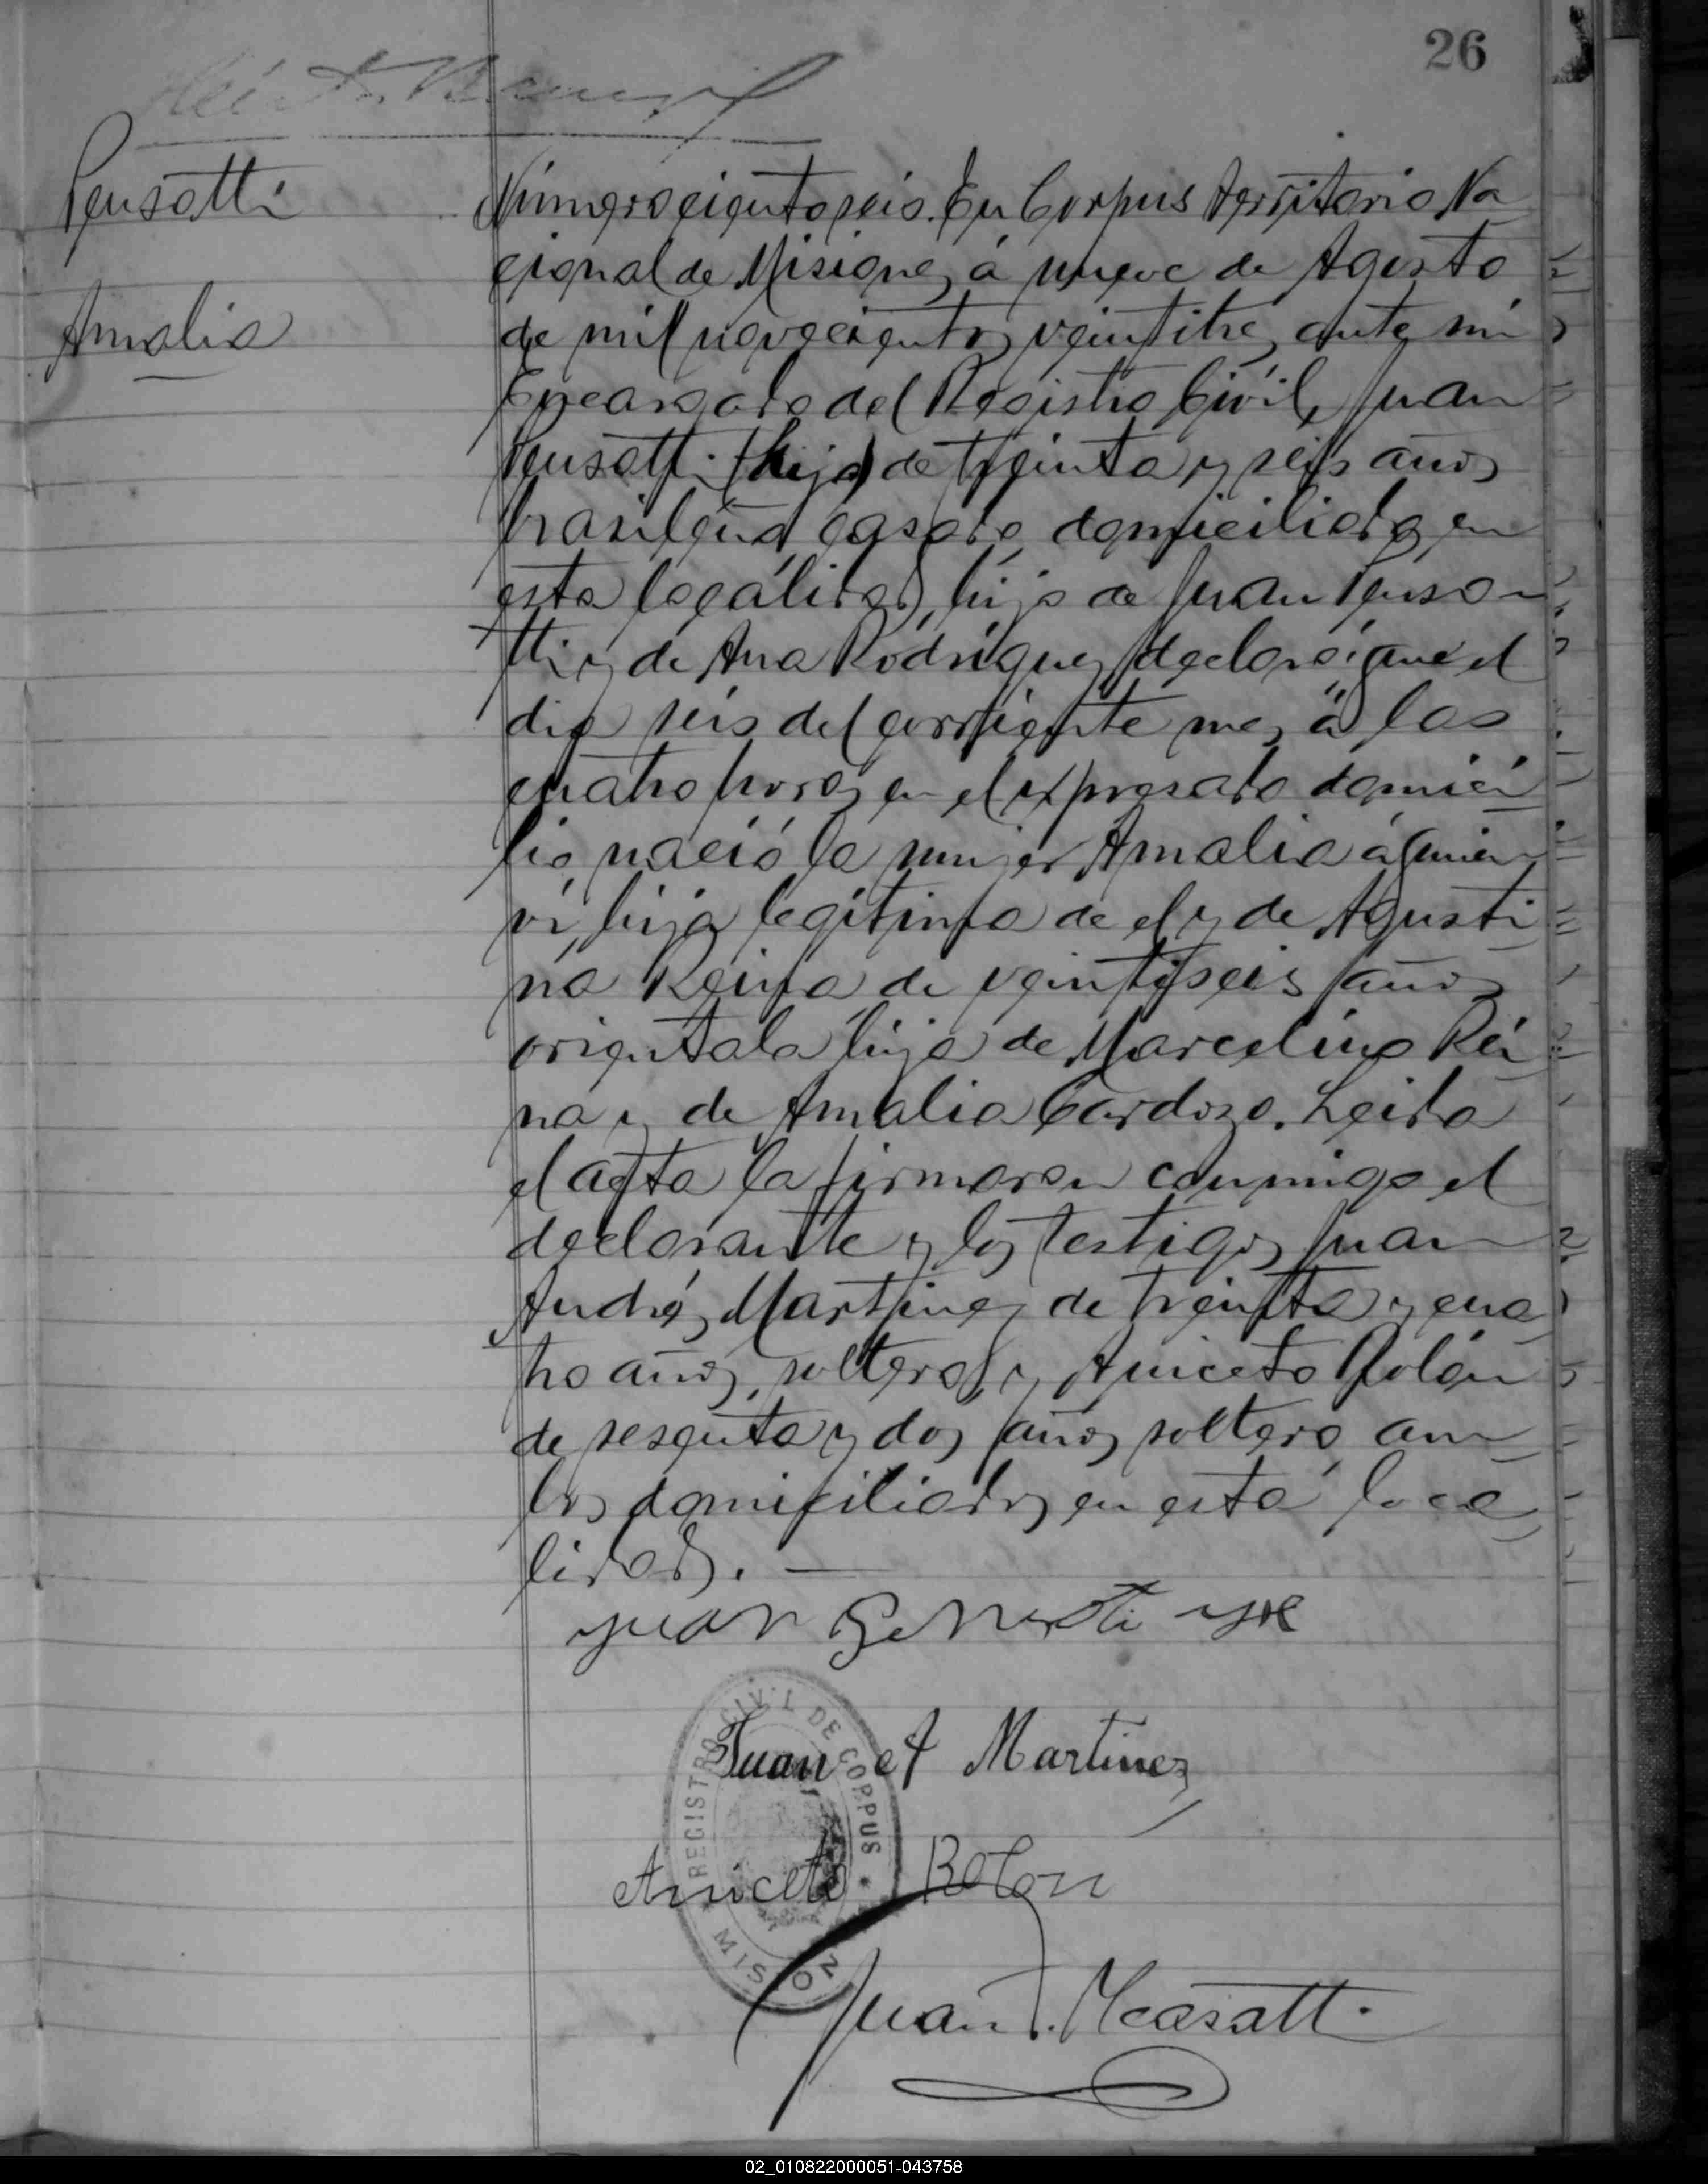 26
Pensotti
Amalia
Número ciento seis. En Corpus Territorio Na
cional de Misiones á nueve de Agosto
de mil novecientos veintitres, ante mi
Encargado del Registro Civil, Juan
Pensotti (hijo) de treinta y seis años
brasileño, casado, domiciliado en
esta localidad, hijo de Juan Penso-
tti y de Ana Rodríguez, declaró: que el
dia seis del corriente mes á las
cuatro horas en el expresado domici
lio nació la mujer Amalia á quien
ví, hija legítima de el y de Agusti
na Reina de veintiseis años
oriental hija de Marcelino Rei
na y de Amalia Cardozo. Leida
el acta la firmaron conmigo el
declarante y los testigos Juan
Andrés Martinez de treinta y cua
tro años, soltero, y Aniceto Rolón
de sesenta y dos años, soltero, am
bos domiciliados en esta loca
lidad. —
Juan Pensotti
Juan A Martinez
Aniceto Rolon
Juan
REGISTRO CIVIL DE CORPUS
MISION
02_010822000051-043758